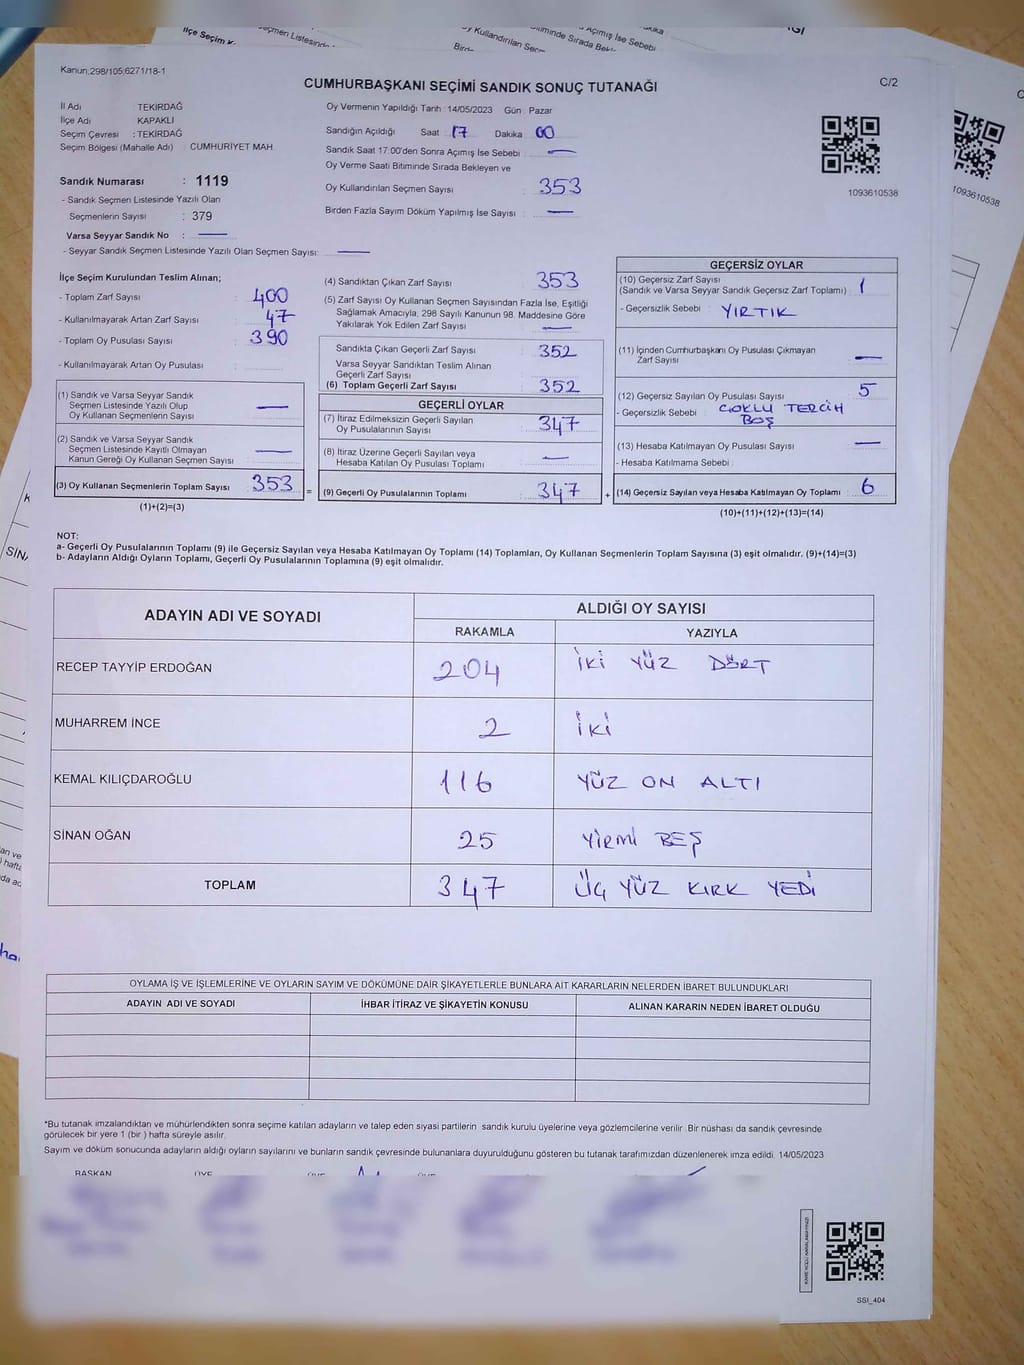 İlçe Seçim K
Kanun:298/105;6271/18-1
CUMHURBAŞKANI SEÇİMİ SANDIK SONUÇ TUTANAĞI
C/2
İl Adı : TEKİRDAĞ
İlçe Adı : KAPAKLI
Seçim Çevresi : TEKİRDAĞ
Seçim Bölgesi (Mahalle Adı) : CUMHURİYET MAH.
Sandık Numarası : 1119
- Sandık Seçmen Listesinde Yazılı Olan
Seçmenlerin Sayısı : 379
Varsa Seyyar Sandık No : —
- Seyyar Sandık Seçmen Listesinde Yazılı Olan Seçmen Sayısı: —
Oy Vermenin Yapıldığı Tarih : 14/05/2023 Gün : Pazar
Sandığın Açıldığı Saat 17 Dakika 00
Sandık Saat 17:00'den Sonra Açımış İse Sebebi : —
Oy Verme Saati Bitiminde Sırada Bekleyen ve
Oy Kullandırılan Seçmen Sayısı : 353
Birden Fazla Sayım Döküm Yapılmış İse Sayısı : —
1093610538
1093610538
İlçe Seçim Kurulundan Teslim Alınan;
- Toplam Zarf Sayısı : 400
- Kullanılmayarak Artan Zarf Sayısı : 47
- Toplam Oy Pusulası Sayısı : 390
- Kullanılmayarak Artan Oy Pusulası :
(1) Sandık ve Varsa Seyyar Sandık
Seçmen Listesinde Yazılı Olup
Oy Kullanan Seçmenlerin Sayısı —
(2) Sandık ve Varsa Seyyar Sandık
Seçmen Listesinde Kayıtlı Olmayan
Kanun Gereği Oy Kullanan Seçmen Sayısı —
(3) Oy Kullanan Seçmenlerin Toplam Sayısı 353
(1)+(2)=(3)
(4) Sandıktan Çıkan Zarf Sayısı : 353
(5) Zarf Sayısı Oy Kullanan Seçmen Sayısından Fazla İse, Eşitliği
Sağlamak Amacıyla, 298 Sayılı Kanunun 98. Maddesine Göre
Yakılarak Yok Edilen Zarf Sayısı : —
Sandıkta Çıkan Geçerli Zarf Sayısı : 352
Varsa Seyyar Sandıktan Teslim Alınan
Geçerli Zarf Sayısı :
(6) Toplam Geçerli Zarf Sayısı : 352
GEÇERLİ OYLAR
(7) İtiraz Edilmeksizin Geçerli Sayılan
Oy Pusulalarının Sayısı : 347
(8) İtiraz Üzerine Geçerli Sayılan veya
Hesaba Katılan Oy Pusulası Toplamı : —
= (9) Geçerli Oy Pusulalarının Toplamı : 347 +
GEÇERSİZ OYLAR
(10) Geçersiz Zarf Sayısı
(Sandık ve Varsa Seyyar Sandık Geçersiz Zarf Toplamı) : 1
- Geçersizlik Sebebi : YIRTIK
(11) İçinden Cumhurbaşkanı Oy Pusulası Çıkmayan
Zarf Sayısı —
(12) Geçersiz Sayılan Oy Pusulası Sayısı : 5
- Geçersizlik Sebebi : ÇOKLU TERCİH
BOŞ
(13) Hesaba Katılmayan Oy Pusulası Sayısı : —
- Hesaba Katılmama Sebebi :
(14) Geçersiz Sayılan veya Hesaba Katılmayan Oy Toplamı : 6
(10)+(11)+(12)+(13)=(14)
NOT:
a- Geçerli Oy Pusulalarının Toplamı (9) ile Geçersiz Sayılan veya Hesaba Katılmayan Oy Toplamı (14) Toplamları, Oy Kullanan Seçmenlerin Toplam Sayısına (3) eşit olmalıdır. (9)+(14)=(3)
b- Adayların Aldığı Oyların Toplamı, Geçerli Oy Pusulalarının Toplamına (9) eşit olmalıdır.
ADAYIN ADI VE SOYADI ALDIĞI OY SAYISI
RAKAMLA YAZIYLA
RECEP TAYYİP ERDOĞAN 204 İKİ YÜZ DÖRT
MUHARREM İNCE 2 İKİ
KEMAL KILIÇDAROĞLU 116 YÜZ ON ALTI
SİNAN OĞAN 25 YİRMİ BEŞ
TOPLAM 347 ÜÇ YÜZ KIRK YEDİ
OYLAMA İŞ VE İŞLEMLERİNE VE OYLARIN SAYIM VE DÖKÜMÜNE DAİR ŞİKAYETLERLE BUNLARA AİT KARARLARIN NELERDEN İBARET BULUNDUKLARI
ADAYIN ADI VE SOYADI İHBAR İTİRAZ VE ŞİKAYETİN KONUSU ALINAN KARARIN NEDEN İBARET OLDUĞU
*Bu tutanak imzalandıktan ve mühürlendikten sonra seçime katılan adayların ve talep eden siyasi partilerin sandık kurulu üyelerine veya gözlemcilerine verilir. Bir nüshası da sandık çevresinde
görülecek bir yere 1 (bir ) hafta süreyle asılır.
Sayım ve döküm sonucunda adayların aldığı oyların sayılarını ve bunların sandık çevresinde bulunanlara duyurulduğunu gösteren bu tutanak tarafımızdan düzenlenerek imza edildi. 14/05/2023
BAŞKAN ÜYE
SSI_404